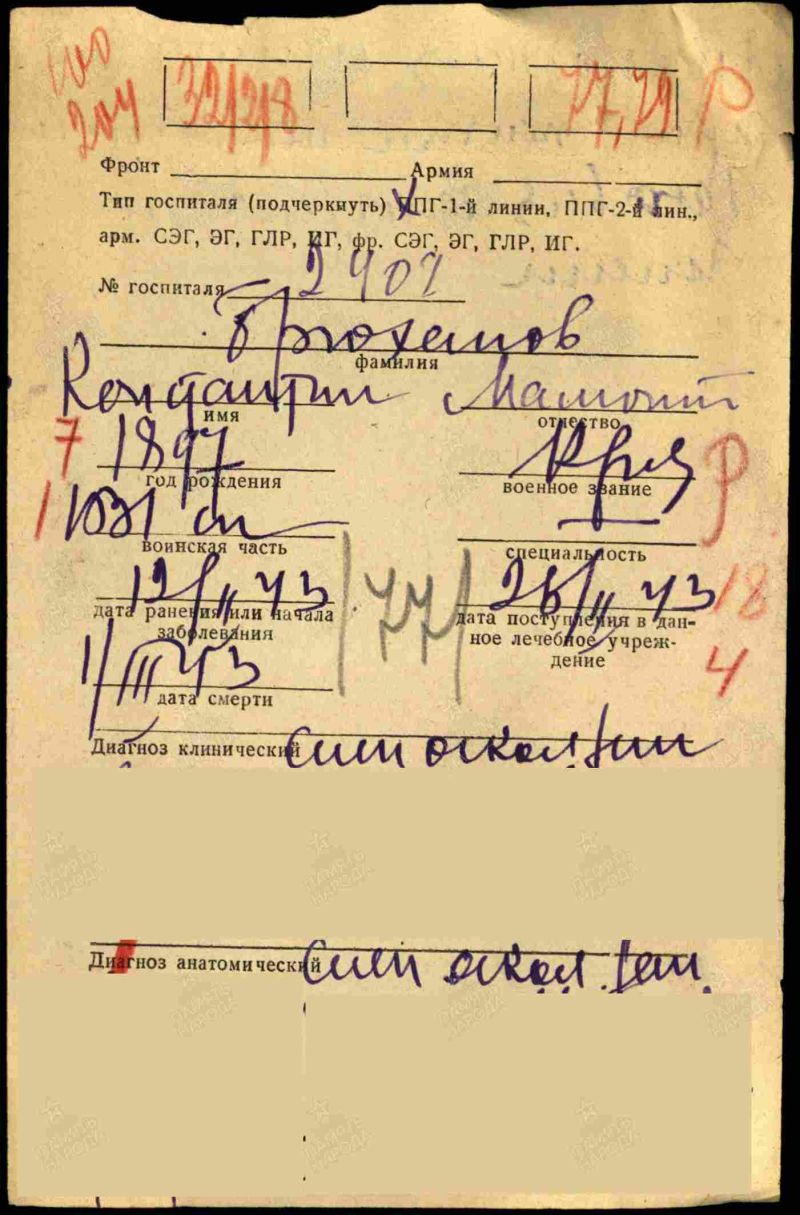 100
204
32/2/8 77,79 Р
Фронт Армия
Тип госпиталя (подчеркнуть) ППГ-1-й линии, ППГ-2-й лин.,
арм. СЭГ, ЭГ, ГЛР, ИГ, фр. СЭГ, ЭГ, ГЛР, ИГ.
№ госпиталя 2407
Брюханов
фамилия
Константин Мамонт
имя отчество
7 1897 Кр-ц Р
год рождения военное звание
1 1031 сп —
воинская часть специальность
12/II 43 77 26/II 43 18
дата ранения или начала дата поступления в дан-
заболевания ное лечебное учреж-
дение
1/III 43 4
дата смерти
Диагноз клинический Слеп оскол
Диагноз анатомический Слеп оскол
ПАМЯТЬ НАРОДА